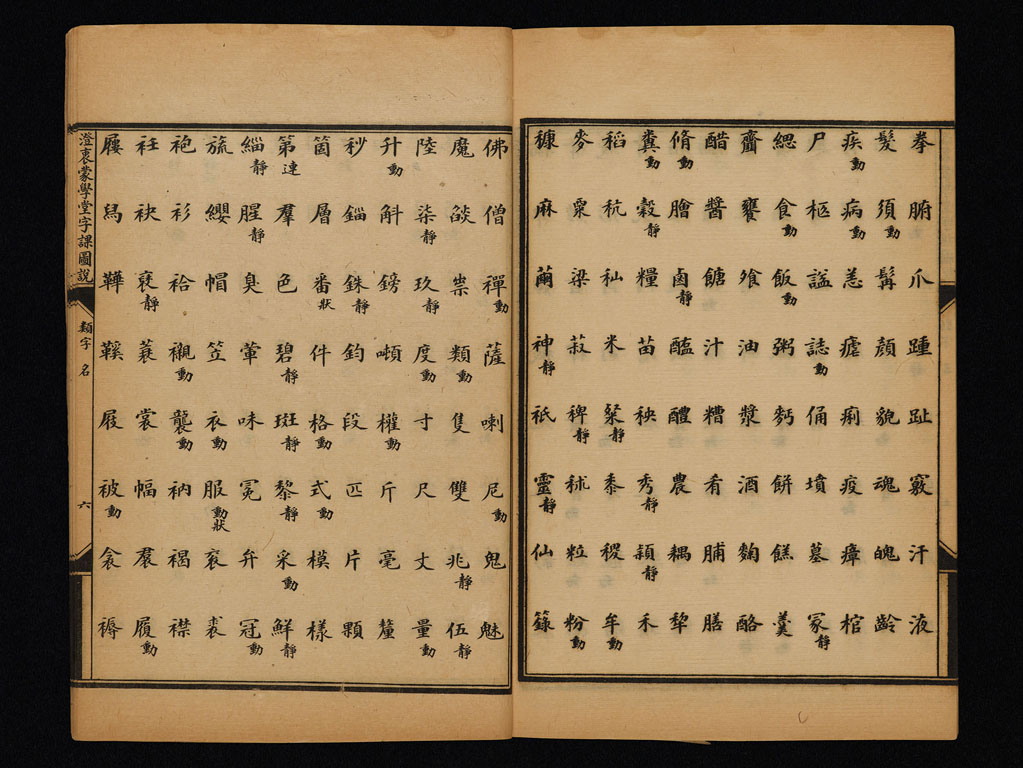 拳腑爪踵趾竅汗液
髮須動髯顏貌魂魄齡
疾動病動恙瘧痢疫瘴棺
尸柩諡誌動俑墳墓冢靜
緦食動飯動粥麪餅餻羹
齏饔飧油漿酒麴酪
醋醬餹汁糟肴脯膳
脩動膾鹵靜醢醴農耦犂
糞動穀靜糧苗秧秀靜穎靜禾
稻秔秈米粲靜黍稷牟動
麥粟粱菽稗靜秫粒粉動
穅麻繭神靜祇靈靜仙籙
佛僧禪動薩喇尼動鬼魅
魔燄祟類動隻雙兆靜伍靜
陸柒靜玖靜度動寸尺丈量動
升動斛鎊噸權動斤毫釐
秒錙銖靜鈞段匹片顆
箇層番狀件格動式動模樣
第連羣色碧靜斑靜黎靜采動鮮靜
緇靜腥靜臭葷味冕弁冠動
旒纓帽笠衣動服動狀袞裘
袍衫袷襯動襲動衲褐襟
衽袂衰靜蓑裳幅裠履動
屨舄鞾鞵屐被動衾褥
澄衷蒙學堂字課圖說 類字 名 六